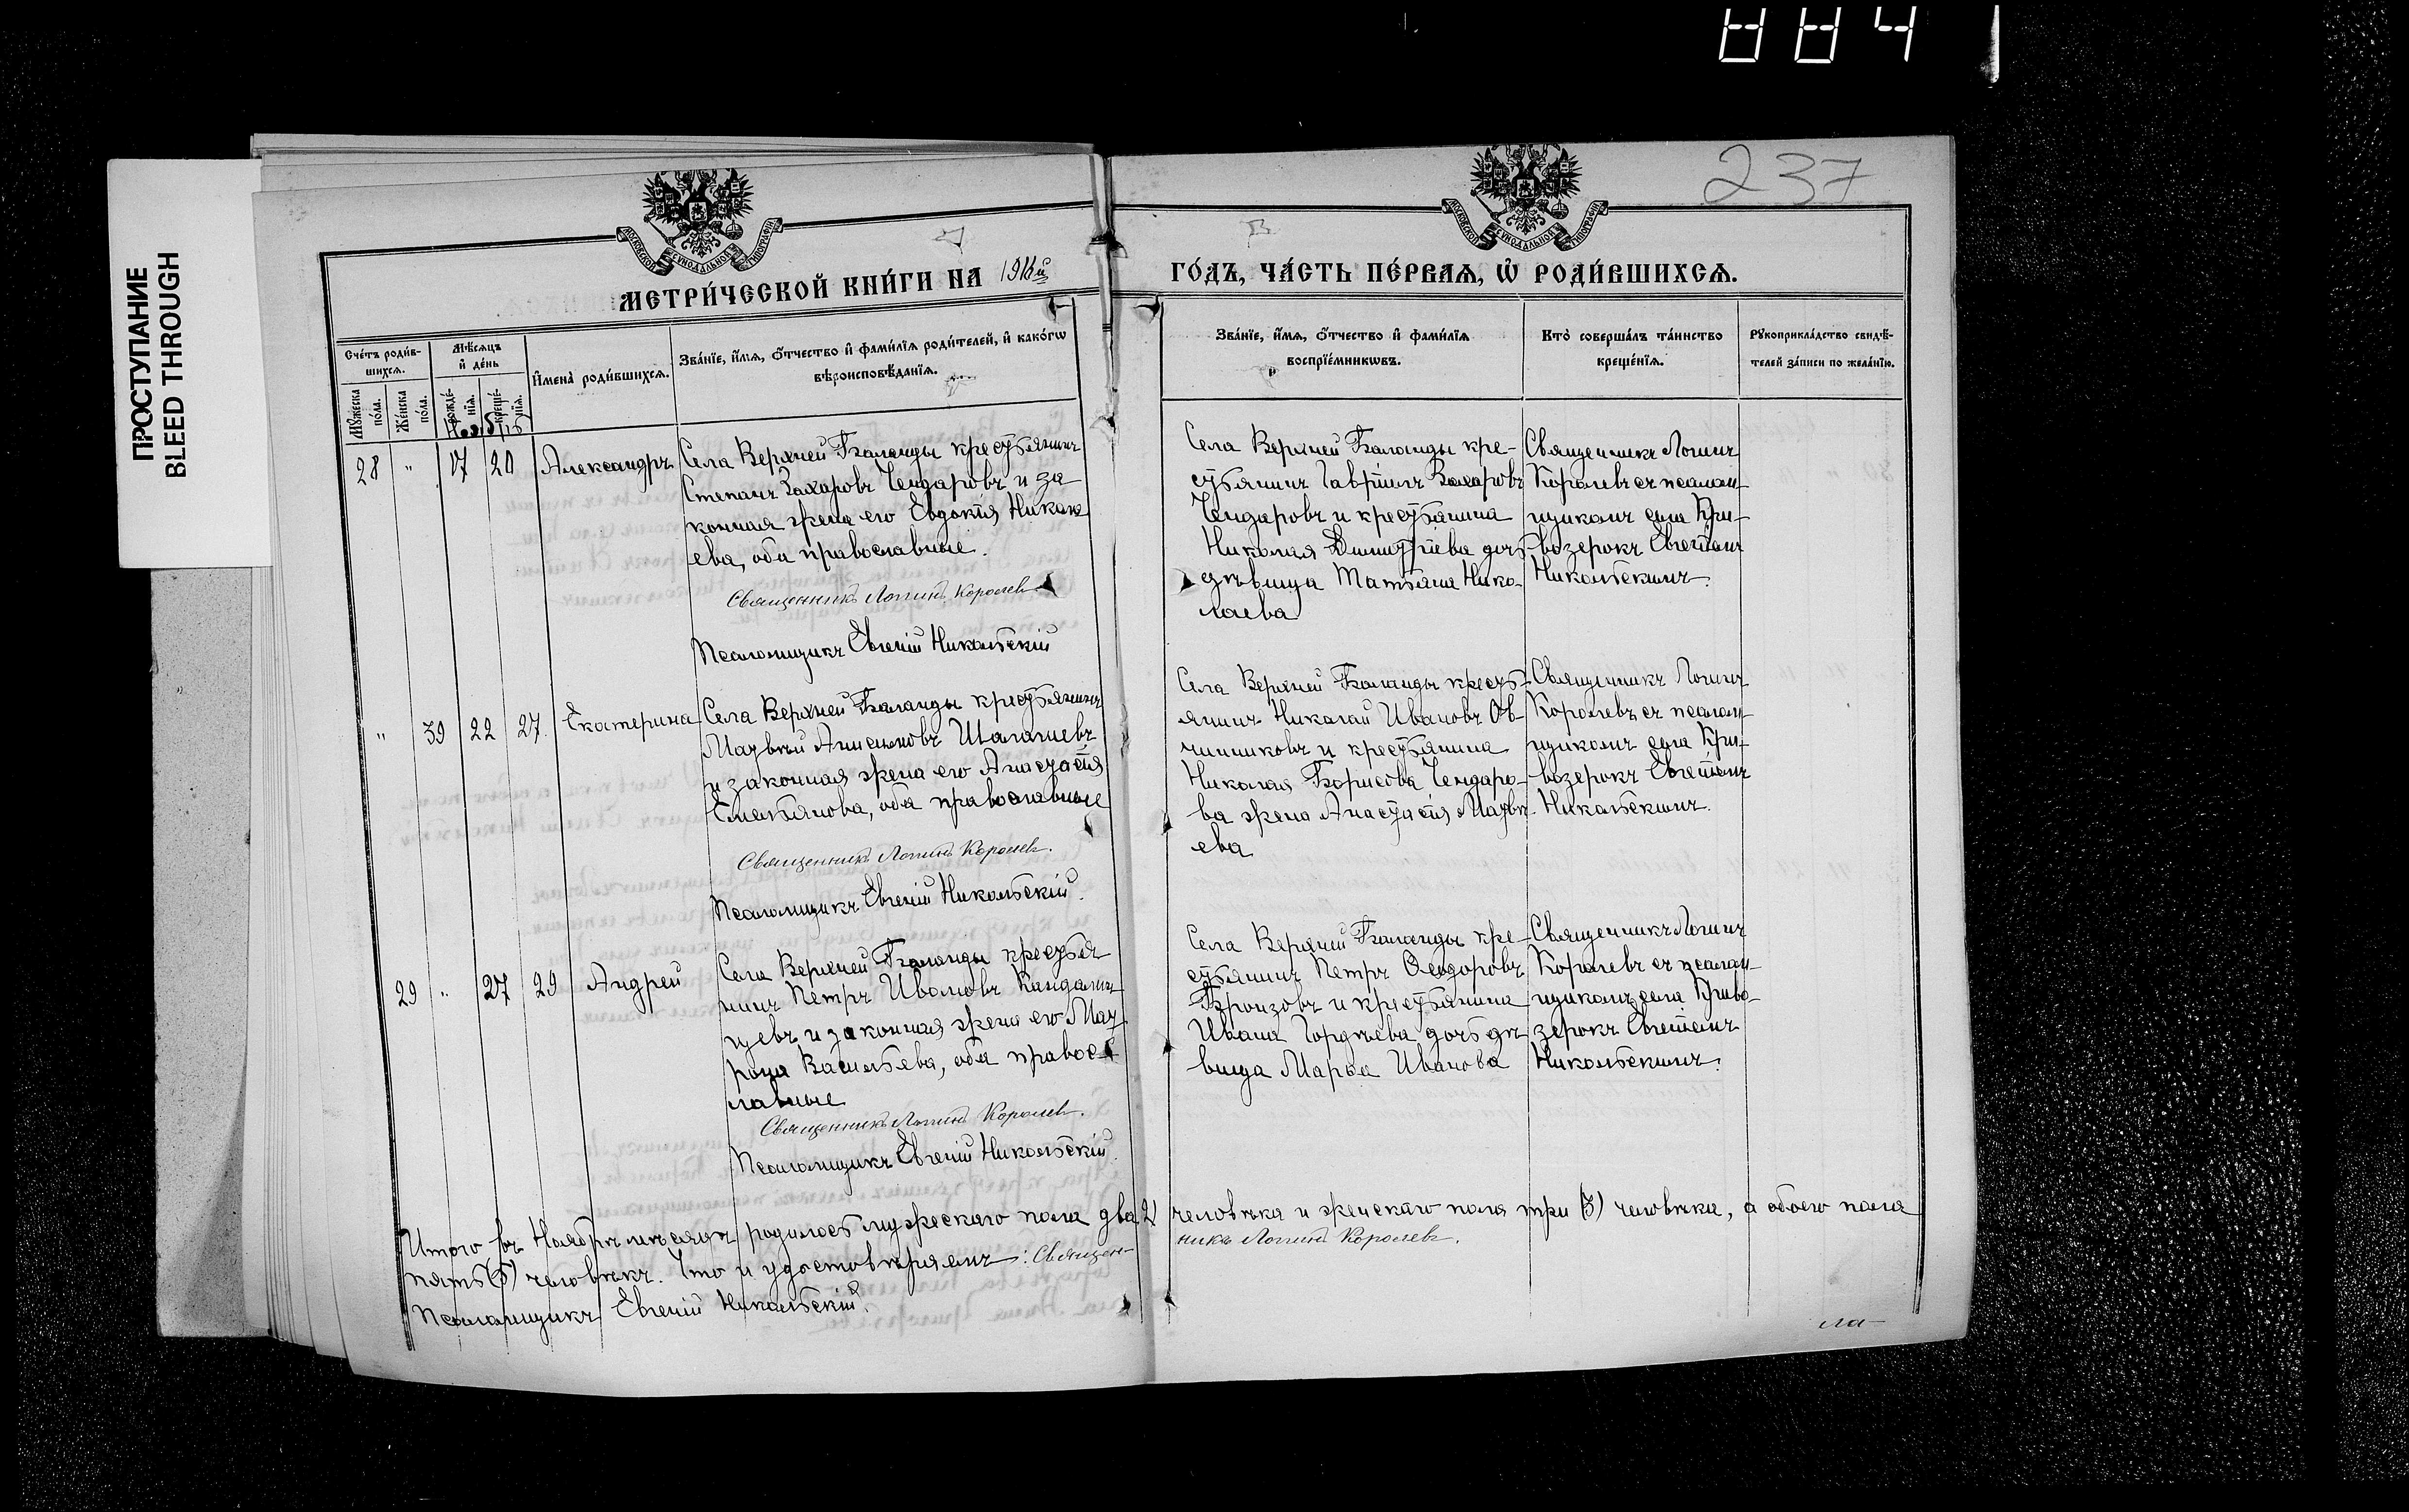 884
ПРОСТУПАНИЕ
BLEED THROUGH
237
МОСКОВСКОЙ СѴНОДАЛЬНОЙ ТИПОГРАФІИ
МОСКОВСКОЙ СѴНОДАЛЬНОЙ ТИПОГРАФІИ
МЕТРИ́ЧЕСКОЙ КНИ́ГИ НА 1916й
ГО́ДЪ, ЧА́СТЬ ПЕ́РВАѦ, Ѡ҆ РОДИ́ВШИХСѦ.
Сче́тъ роди́в-
шихсѧ.
Мꙋ́жеска
по́ла.
Же́нска
по́ла.
Мѣ́сѧцъ
и҆ де́нь
рожде́-
нїѧ.
креще́-
нїѧ.
Ноябрь
И҆мена̀ роди́вшихсѧ.
Зва́нїе, и҆́мѧ, ѻ҆́тчество и҆ фами́лїѧ роди́телей, и҆ како́гѡ
вѣроисповѣ́данїѧ.
Зва́нїе, и҆́мѧ, ѻ҆́тчество и҆ фами́лїѧ
воспрїе́мникѡвъ.
Кто̀ соверша́лъ та́инство
креще́нїѧ.
Рꙋкоприкла́дство свидѣ́-
телей за́писи по жела́нїю.
28 " 17 20 Александръ
Села Верхней Баланды крестьянинъ
Степанъ Захаровъ Чендаровъ и за
конная жена его Евдокія Никола
ева, оба православные.
Священникъ Логинъ Королев
Псаломщикъ Евгеній Никольскій
Села Верхней Баланды кре-
стьянинъ Гавріилъ Захаровъ
Чендаровъ и крестьянина
Николая Димитріева дочь
дѣвица Татьяна Нико-
лаева
Священникъ Логинъ
Королевъ съ псалом-
щикомъ села Кри-
возерокъ Евгеніемъ
Никольскимъ.
" 39 22 27. Екатерина
Села Верхней Баланды крестьянинъ
Матвѣй
и законная жена его Анастасія
Емельянова, оба православные
Священникъ Логинъ Королев.
Псаломщикъ Евгеній Никольскій.
Села Верхней Баланды кресть-
янинъ Николай Ивановъ Ов-
чинниковъ и крестьянина
Николая Борисова Чендаро-
ва жена Анастасія Матвѣ-
ева
Священникъ Логинъ
Королевъ съ псалом-
щикомъ села Кри-
возерокъ Евгеніемъ
Никольскимъ.
29 " 27 29 Андрей
Села Верхней Баланды крестья
нинъ Петръ Ивановъ
и законная жена его Мат
рона Васильева, оба правос-
лавные
Священникъ Логинъ Королев.
Псаломщикъ Евгеній Никольскій.
Села Верхней Баланды кре-
стьянинъ Петръ Ѳеодоровъ
Бронзовъ и крестьянина
Ивана Гордѣева дочь дѣ
вица Марья Иванова
Священникъ Логинъ
Королевъ съ псалом-
щикомъ села Криво-
зерокъ Евгеніемъ
Никольскимъ.
Итого въ Ноябрѣ мѣсяцѣ родилось мужескаго пола два 2) человѣка и женскаго пола три (3) человѣка, а обоего пола
пять (5) человѣкъ. Что и удостовѣряемъ: Священ-
никъ Логинъ Королевъ.
Псаломщикъ Евгеній Никольскій.
ла-